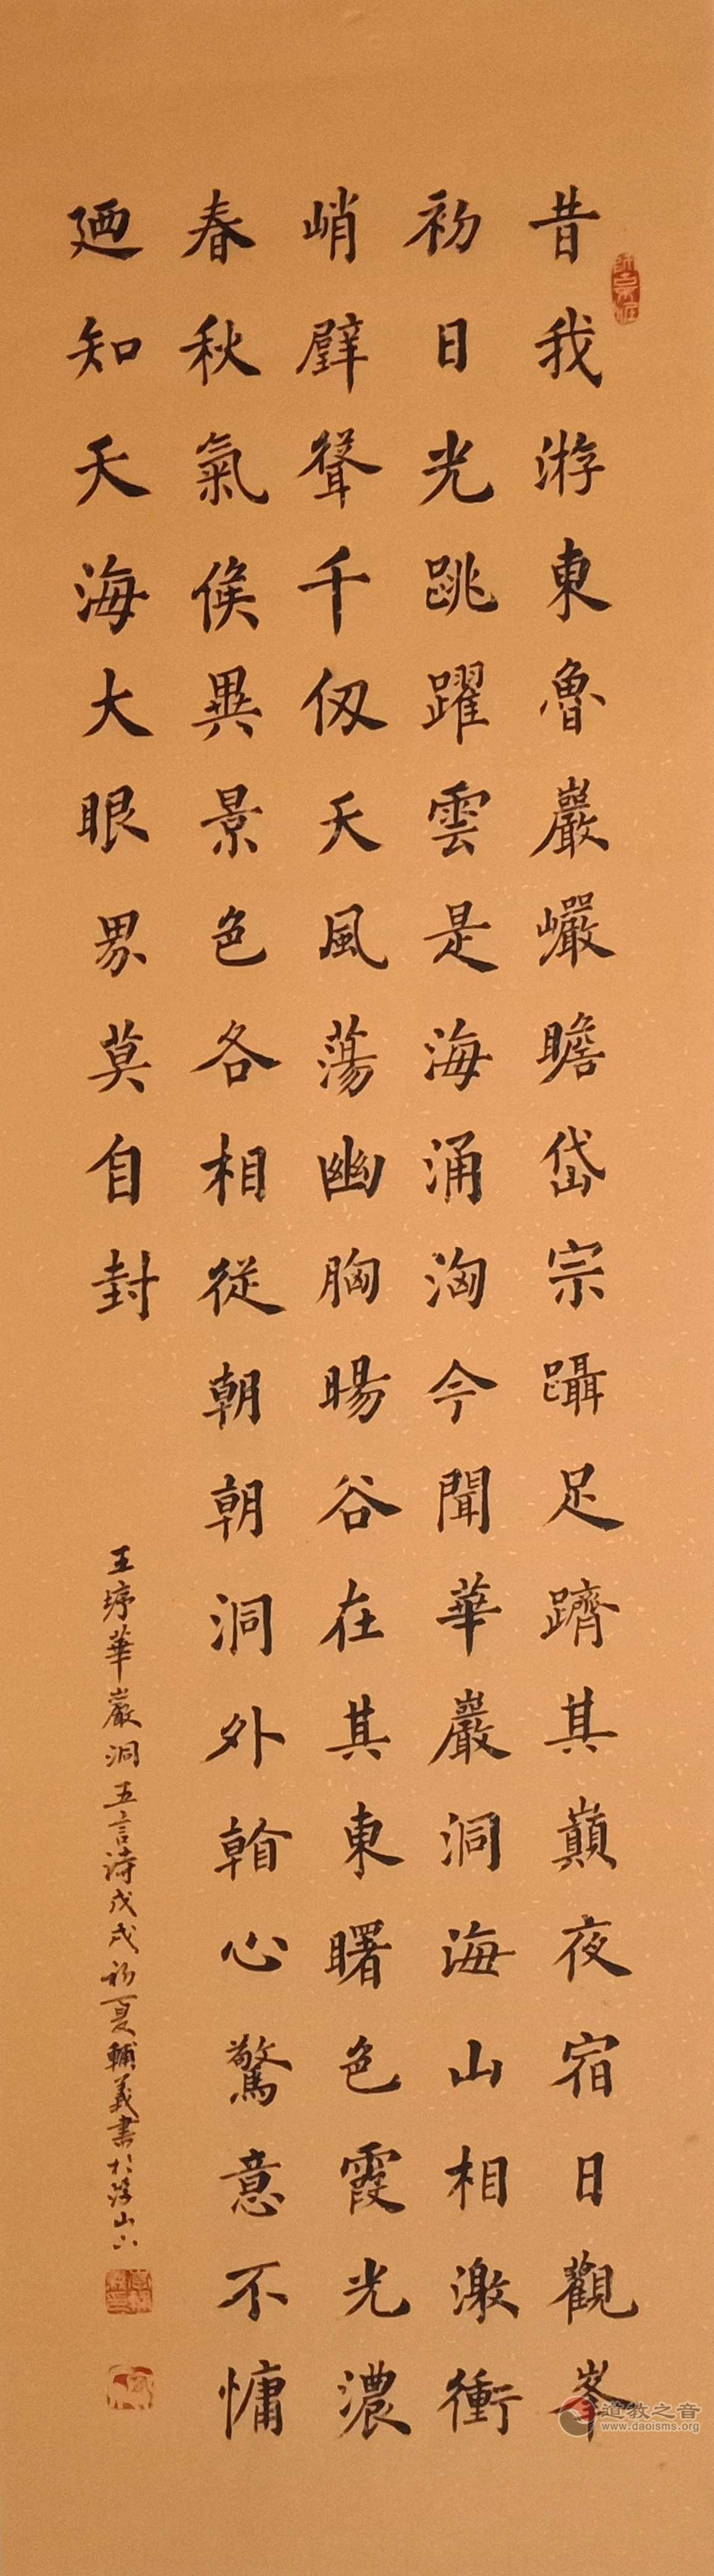 昔我游東魯巖巗瞻岱宗躡足躋其巔夜宿日觀峯
初日光跳躍雲是海涌洶今聞華巖洞海山相激衝
峭壁聳千仞天風蕩幽胸暘谷在其東曙色霞光濃
春秋氣候異景色各相從朝朝洞外翰心驚意不慵
廼知天海大眼界莫自封
王垿華巖洞五言詩戊戌初夏輔義書於浮山下
道教之音
www.daoisms.org